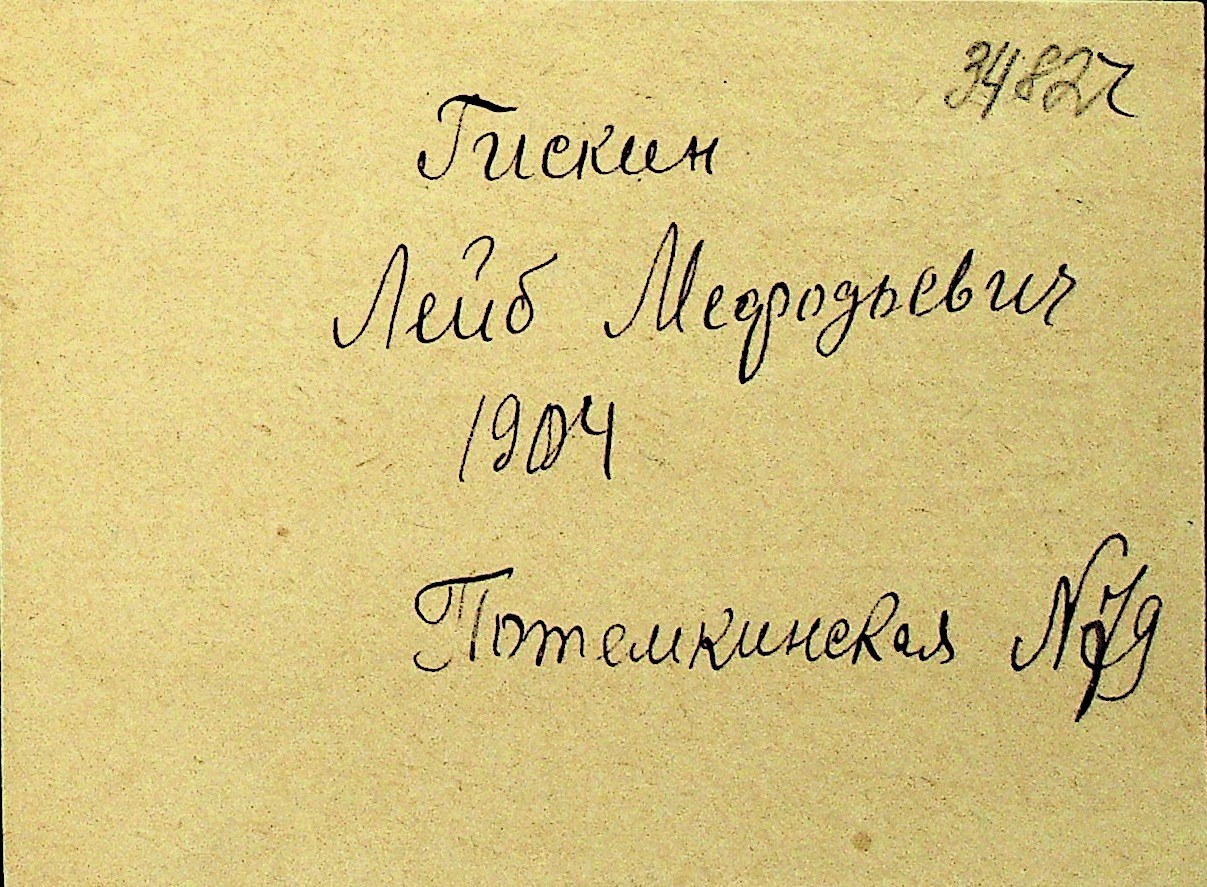 3482ч
Гискин
Лейб Мефодьевич
1904
Потемкинская №79